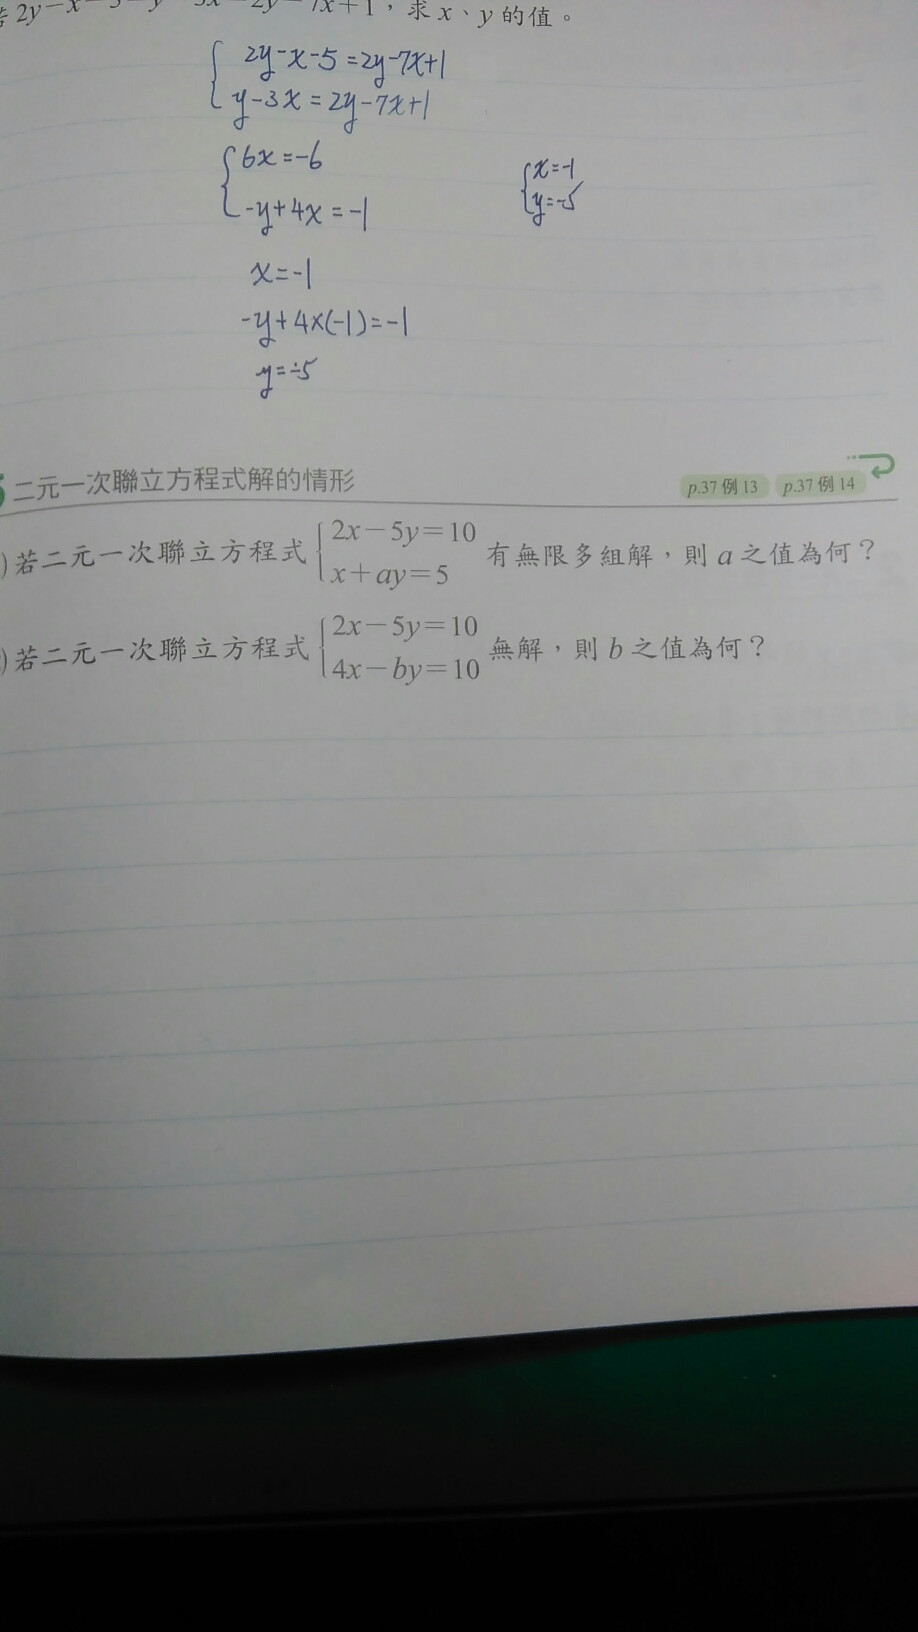 2y-x-5=y-3x=2y-7x+1,求x、y的值。
2y-x-5=2y-7x+1
y-3x=2y-7x+1
6x=-6
-y+4x=-1
x=-1
y=-5
x=-1
-y+4x(-1)=-1
y=-5
二元一次聯立方程式解的情形
p.37 例 13 p.37 例 14
)若二元一次聯立方程式 { 2x-5y=10 x+ay=5 有無限多組解,則 a 之值為何?
)若二元一次聯立方程式 { 2x-5y=10 4x-by=10 無解,則 b 之值為何?